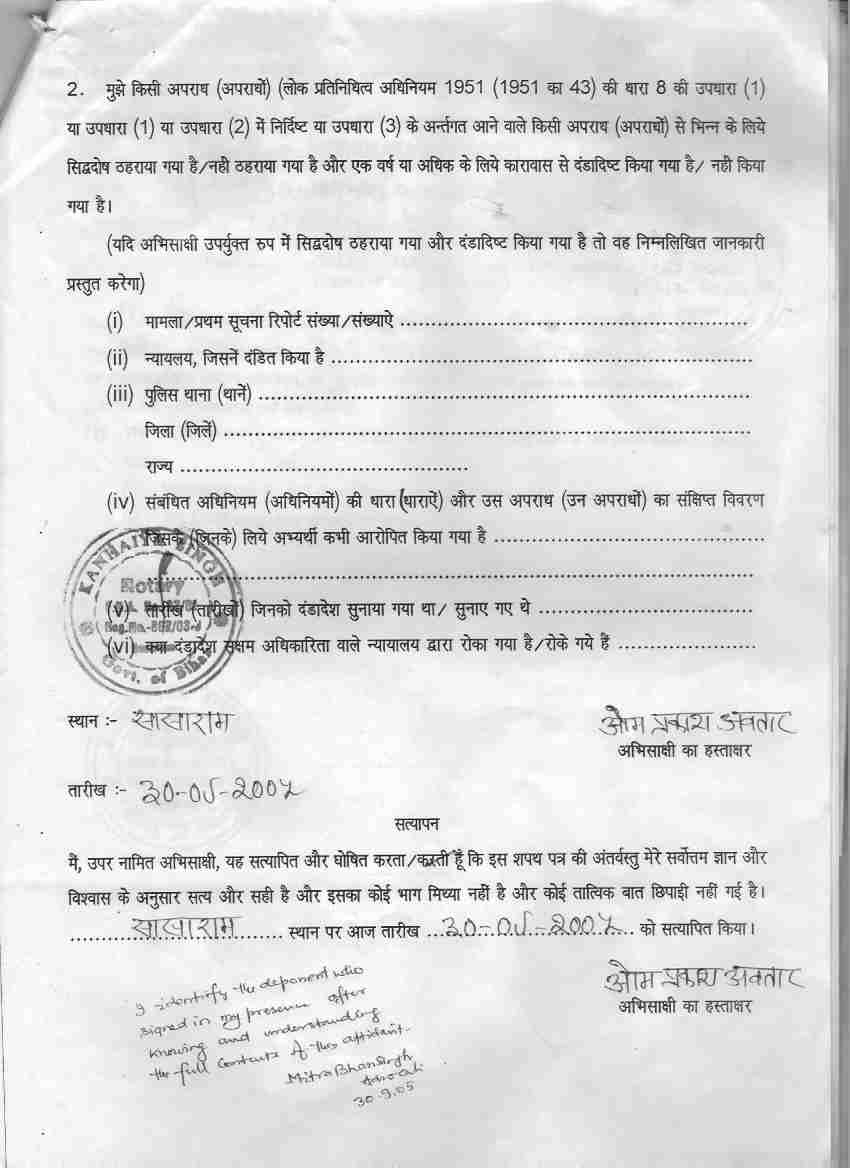 2. मुझे किसी अपराध (अपराधों) (लोक प्रतिनिधित्व अधिनियम 1951 (1951 का 43) की धारा 8 की उपधारा (1)
या उपधारा (1) या उपधारा (2) में निर्दिष्ट या उपधारा (3) के अर्न्तगत आने वाले किसी अपराध (अपराधों) से भिन्न के लिये
सिद्वदोष ठहराया गया है/नही ठहराया गया है और एक वर्ष या अधिक के लिये कारावास से दंडादिष्ट किया गया है/ नही किया
गया है।
(यदि अभिसाक्षी उपर्युक्त रुप में सिद्वदोष ठहराया गया और दंडादिष्ट किया गया है तो वह निम्नलिखित जानकारी
प्रस्तुत करेगा)
(i) मामला/प्रथम सूचना रिपोर्ट संख्या/संख्याऐ ................................................................
(ii) न्यायलय, जिसनें दंडित किया है ................................................................
(iii) पुलिस थाना (थानें) ................................................................
जिला (जिलें) ................................................................
राज्य ................................................
(iv) संबंधित अधिनियम (अधिनियमों) की धारा (धाराऐं) और उस अपराध (उन अपराधों) का संक्षिप्त विवरण
जिसके (जिनके) लिये अभ्यर्थी कभी आरोपित किया गया है ................................................
................................................................
(v) तारीख (तारीखों) जिनको दंडादेश सुनाया गया था/ सुनाए गए थे ........................................
(vi) क्या दंडादेश सक्षम अधिकारिता वाले न्यायालय द्वारा रोका गया है/रोके गये हैं ........................
KANHAIYA SINGH
Notary
Govt. of Bihar
स्थान :- सासाराम
ओम प्रकाश अवतार
अभिसाक्षी का हस्ताक्षर
तारीख :- 30-09-2005
सत्यापन
मैं, उपर नामित अभिसाक्षी, यह सत्यापित और घोषित करता/करती हूँ कि इस शपथ पत्र की अंतर्यस्तु मेरे सर्वोत्तम ज्ञान और
विश्वास के अनुसार सत्य और सही है और इसका कोई भाग मिथ्या नहीं है और कोई तात्विक बात छिपाई नहीं गई है।
सासाराम स्थान पर आज तारीख 30-09-2005 को सत्यापित किया।
ओम प्रकाश अवतार
अभिसाक्षी का हस्ताक्षर
I identify the deponent who
signed in my presence after
knowing and understanding
the full contents of the affidavit.
Mitra Bhan Singh
Advocate
30.9.05